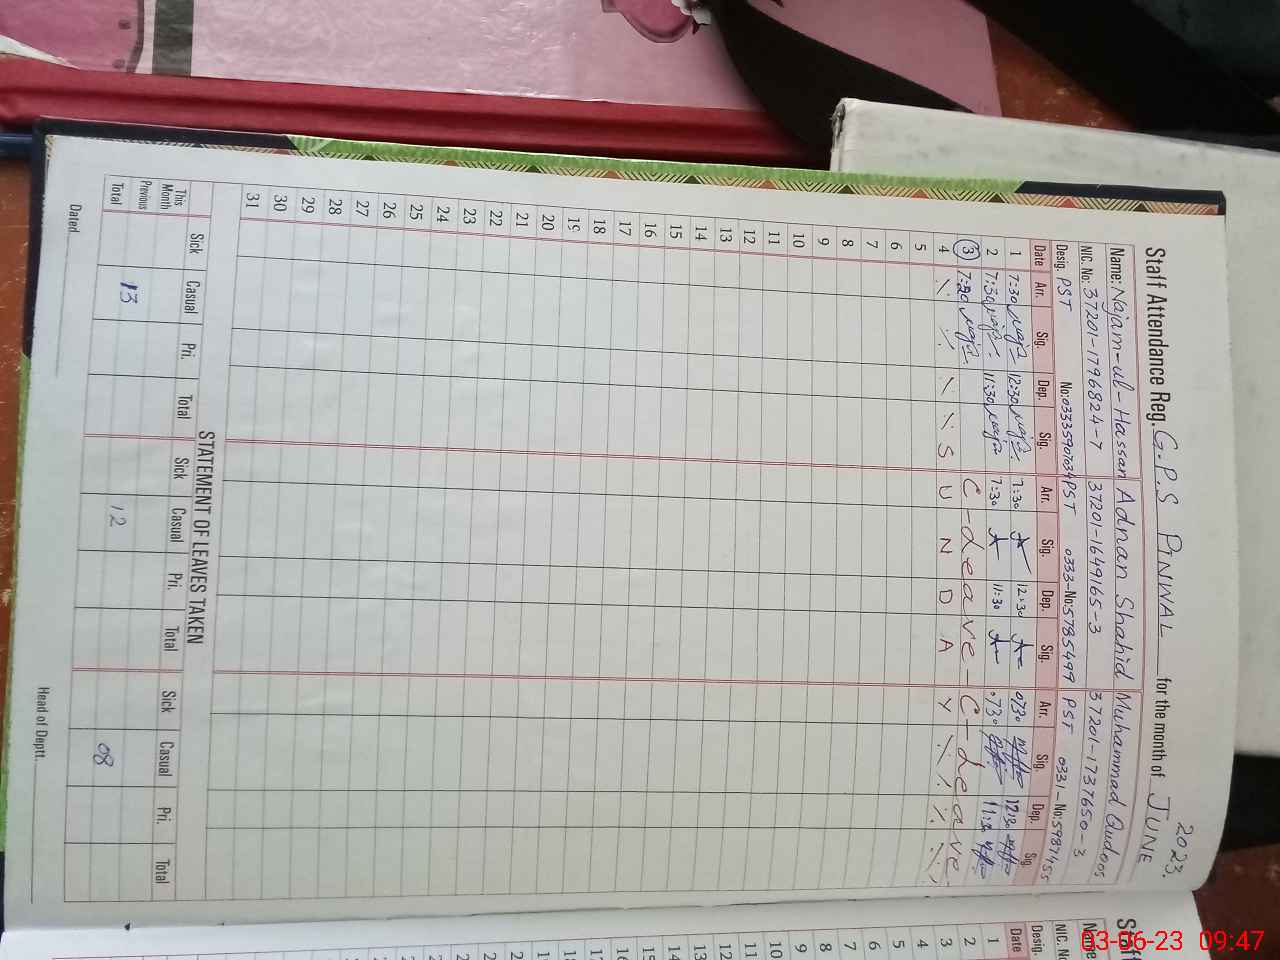 Staff Attendance Reg. G.P.S PINWAL for the month of JUNE 2023.
Name: Najam-ul-Hassan Adnan Shahid Muhammad Qudoos
NIC. No: 37201-1796824-7 37201-1649165-3 37201-1737650-3
Desig. PST No: 03335907034 PST 0333-No:5785499 PST 0331-No:5987455
Date Arr. Sig. Dep. Sig. Arr. Sig. Dep. Sig. Arr. Sig. Dep. Sig
1 7:30 12:30 7:30 12:30 0730 12:30
2 7:30 11:30 7:30 11:30 0730 11:30
3 7:30 C-Leave- C-Leave.
4 S U N D A Y
5
6
7
8
9
10
11
12
13
14
15
16
17
18
19
20
21
22
23
24
25
26
27
28
29
30
31
STATEMENT OF LEAVES TAKEN
Sick Casual Pri. Total Sick Casual Pri. Total Sick Casual Pri. Total
This Month
Previous
Total 13 12 08
Dated
Head of Deptt.
Staff
NIC. N
Desig.
Date
1
2
3
4
5
6
7
8
9
10
11
12
13
14
15
16
17
03-06-23 09:47